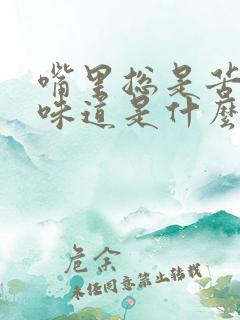 嘴里总是苦
味道是什么
危余
未经同意禁止转载